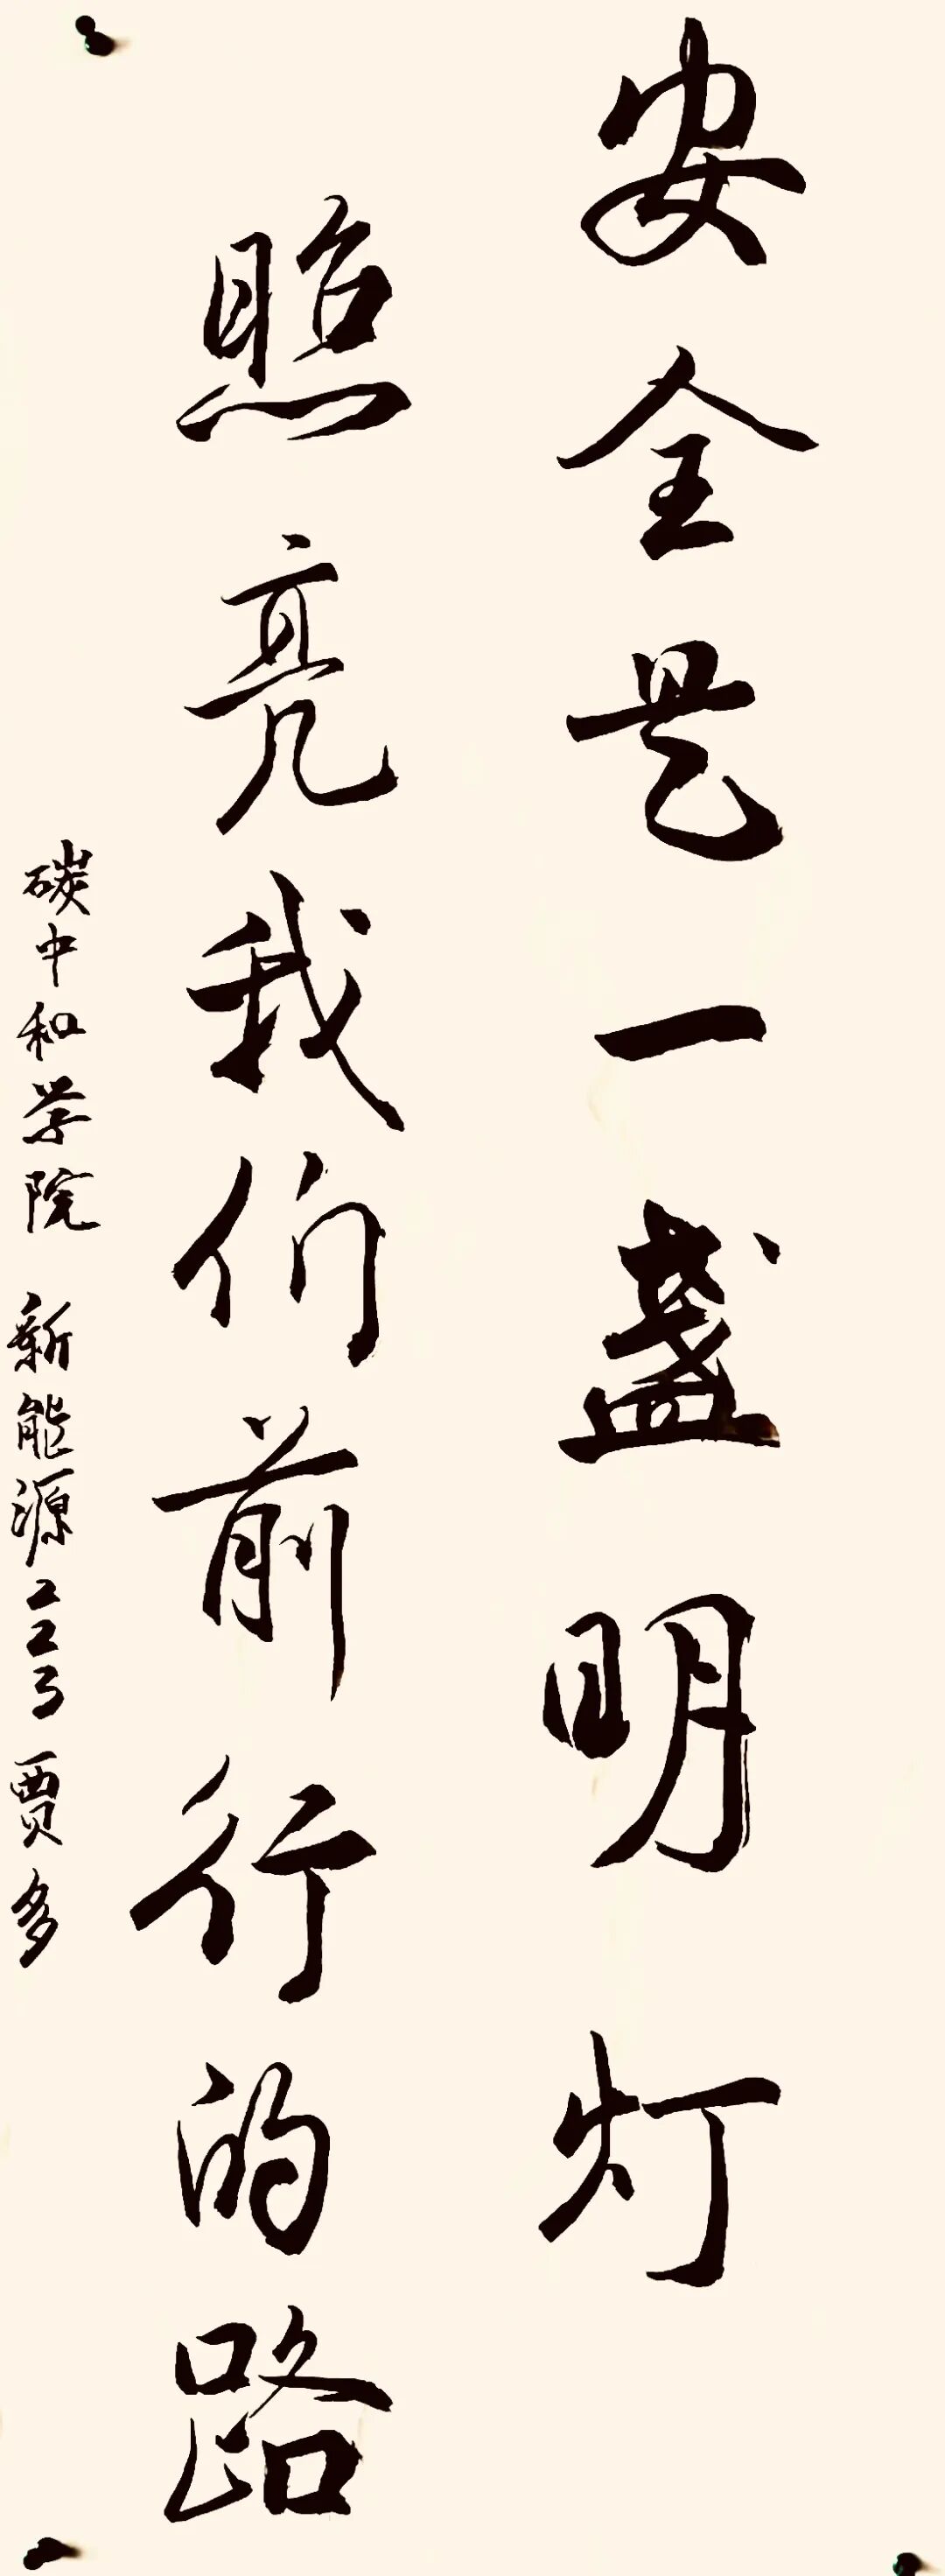 安全是一盏明灯
照亮我们前行的路
碳中和学院 新能源二二3 贾多